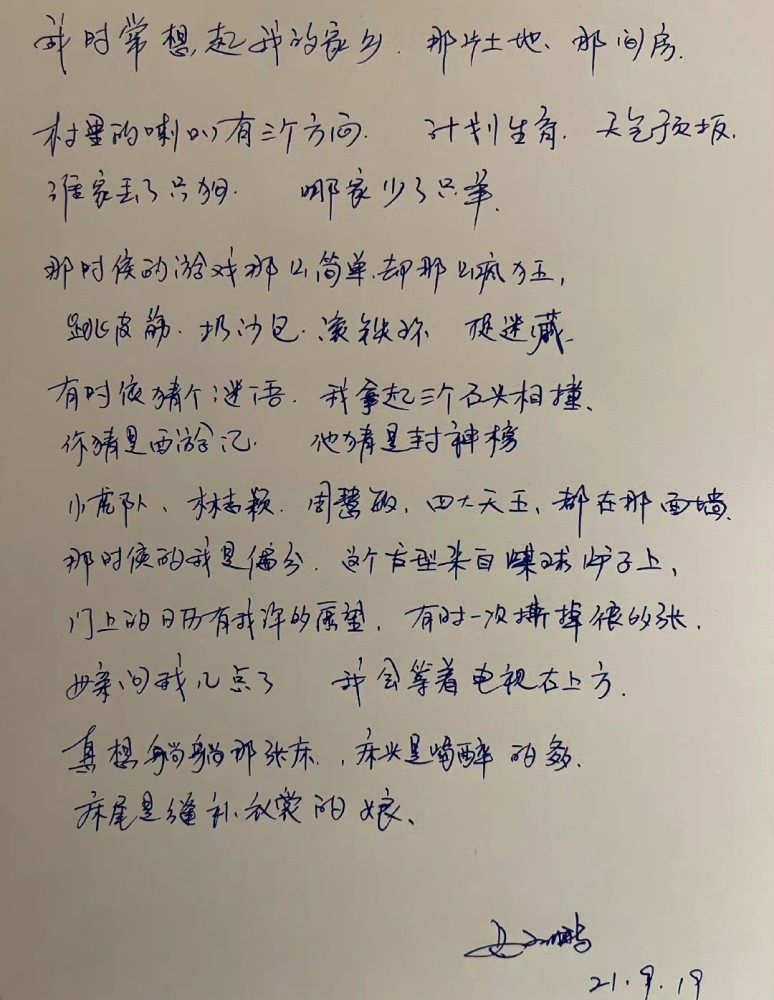 我时常想起我的家乡. 那片土地、那间房.
村里的喇叭有三个方向. 计划生育. 天气预报.
谁家丢了只狗. 哪家少了只羊.
那时候的游戏那么简单.却那么疯狂,
跳皮筋.扔沙包.滚铁环 捉迷藏.
有时候猜个谜语. 我拿起三个石头相撞、
你猜是西游记. 他猜是封神榜
小虎队、林志颖.周慧敏,四大天王,都在那面墙.
那时候的我是偏分.这个发型来自煤球炉子上,
门上的日历有我许的愿望,有时一次撕掉很多张.
母亲问我几点了 我会等着电视右上方.
真想躺躺那张床.,床头是喝醉的爹.
床尾是缝补衣裳的娘、
21.9.19